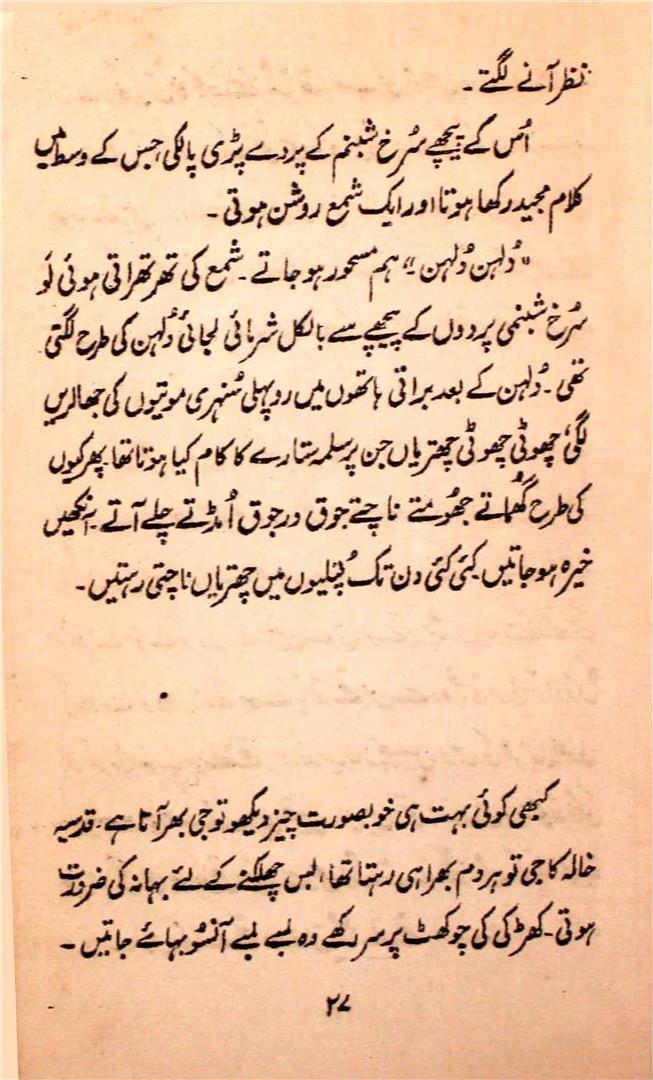 نظر آنے لگتے۔
اُس کے پیچھے سُرخ شبنم کے پردے پڑی پالکی جس کے وسط میں
کلام مجید رکھا ہوتا اور ایک شمع روشن ہوتی۔
"دُلہن دُلہن"، ہم مسحور ہو جاتے۔ شمع کی تھرتھراتی ہوئی لَو
سُرخ شبنمی پردوں کے پیچھے سے بالکل شرمائی لجائی دُلہن کی طرح لگتی
تھی۔ دُلہن کے بعد براتی ہاتھوں میں روپہلی سُنہری موتیوں کی جھالریں
لگی، چھوٹی چھوٹی چھتریاں جن پر سلمہ ستارے کا کام کیا ہوتا تھا۔ پھرکیوں
کی طرح گھُماتے جھُومتے ناچتے جوق در جوق اُمڈتے چلے آتے۔ آنکھیں
خیرہ ہو جاتیں۔ کئی کئی دن تک پُتلیوں میں چھتریاں ناچتی رہتیں۔
کبھی کوئی بہت ہی خوبصورت چیز دیکھو تو جی بھر آتا ہے۔ قدسیہ
خالہ کا جی تو ہر دم بھرا ہی رہتا تھا، بس چھلکنے کے لئے بہانہ کی ضرورت
ہوتی۔ کھڑکی کی چوکھٹ پر سر رکھے وہ لمبے لمبے آنسو بہائے جاتیں۔
۲۷